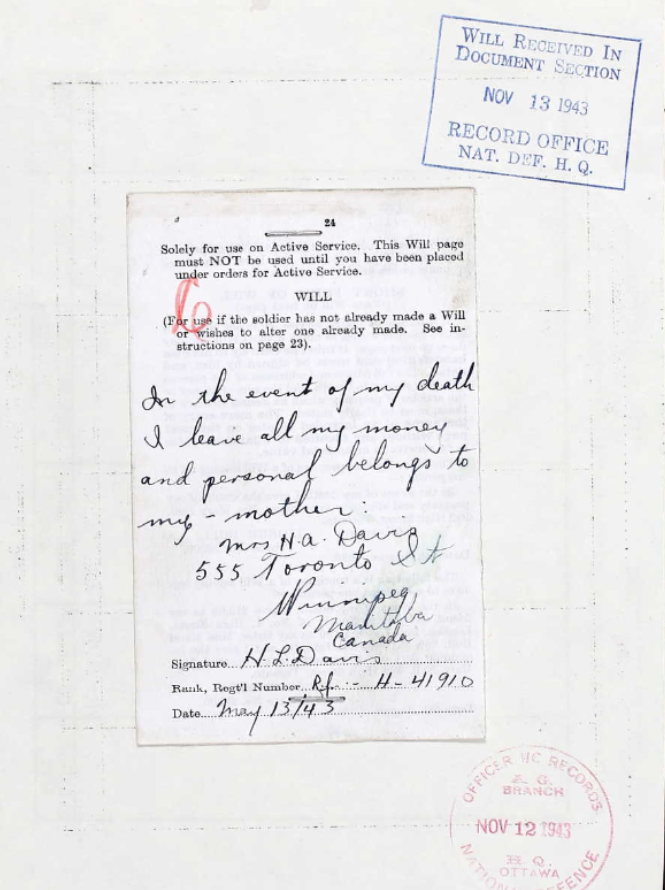 WILL RECEIVED IN
DOCUMENT SECTION
NOV 13 1943
RECORD OFFICE
NAT. DEF. H. Q.
24
Solely for use on Active Service. This Will page
must NOT be used until you have been placed
under orders for Active Service.
WILL
(For use if the soldier has not already made a Will
or wishes to alter one already made. See in-
structions on page 23).
In the event of my death
I leave all my money
and personal belongs to
my - mother:
Mrs H.A. Davis
555 Toronto St
Winnipeg
Manitoba
Canada
Signature H.L. Davis
Rank, Regt'l Number Rfn :- H-41910
Date May 13/43
OFFICER I/C RECORDS
A. G.
BRANCH
NOV 12 1943
H. Q.
OTTAWA
NATIONAL DEFENCE